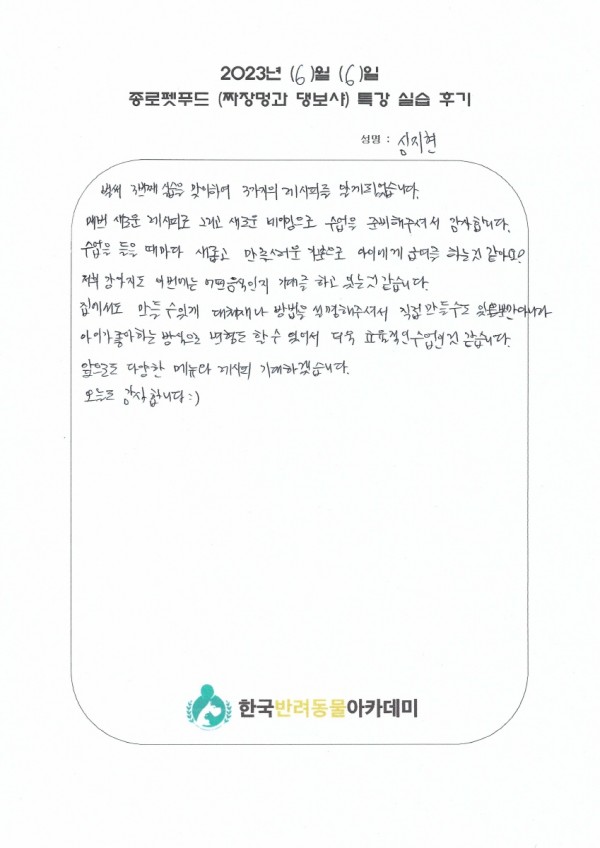 2023년 (6)월 (6)일
종로펫푸드 (짜장멍과 댕보샤) 특강 실습 후기
성명 : 심지현
벌써 3번째 실습을 맞이하여 3가지의 레시피를 알게되었습니다.
매번 새로운 레시피로 그리고 새로운 비법으로 수업을 준비해주셔서 감사합니다.
수업을 들을 때마다 새롭고 만족스러운 기분으로 아이에게 급여를 하는것 같아요!
저희 강아지도 이번에는 어떤음식인지 기대를 하고 있는것 같습니다.
집에서도 만들 수있게 대체재나 방법을 설명해주셔서 직접 만들수도 있을뿐만아니라
아이가 좋아하는 방식으로 변형도 할 수 있어서 더욱 효율적인 수업인것 같습니다.
앞으로도 다양한 메뉴와 레시피 기대하겠습니다.
오늘도 감사합니다 :)
한국반려동물아카데미